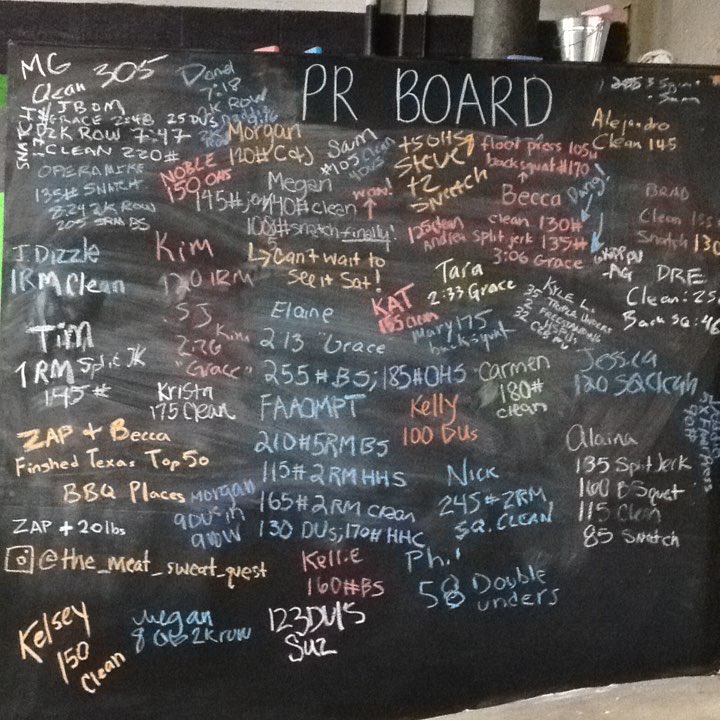 PR BOARD
MG 305
Clean
JBOM
GRACE 2:48 25 DUs
2K ROW 7:47
CLEAN 220#
SNATCH
7:18
2K ROW
Morgan
120# C&J
Sam
#105 Clean
+5 OHS
Steve
+2
Snetch
floor press 105#
back squat #170
Becca
clean 130#
split jerk 135#
3:06 Grace
Dang!
125 clean
Andrea
Alejandro
Clean 145
BRAD
Clean
Snatch 130
OPERAMIKE
135# SNATCH
8:24 2K ROW
205 5RM BS
NOBLE
150 OHS
Megan
145# jerk 140# clean
108# snatch finally!
wow!
Can't wait to
see it Sat!
J. Dizzle
1RM Clean
Kim
120 1RM
Tara
2:33 Grace
KAT
155 Clean
Mary 175
back squat
KYLE L.
35 TRIPLE UNDERS
2 FREESTANDING
HSPU
DRE
Clean: 25
Back SQ: 46
Tim
1RM Split JK
145#
SJ
2:26
"Grace"
Kim
Krista
175 Clean
Elaine
2:13 "Grace"
255# BS; 185# OHS
FAAOMPT
210# 5RM BS
115# 2RM HHS
165# 2RM Clean
130 DUs; 170# HHC
Carmen
180#
clean
Jessica
120 SQ Clean
Kelly
100 DUs
ZAP + Becca
Finshed Texas Top 50
BBQ Places
ZAP + 20 lbs
@the_meat_sweat_quest
Morgan
9 DUs in
a row
Nick
245# 2RM
SQ. CLEAN
Alaina
135 Split Jerk
160 BSquet
115 Clean
85 Snetch
Kellie
160# BS
Phil
58 Double
unders
Kelsey
150
Clean
Megan
8:08 2K row
123 DU's
Suz